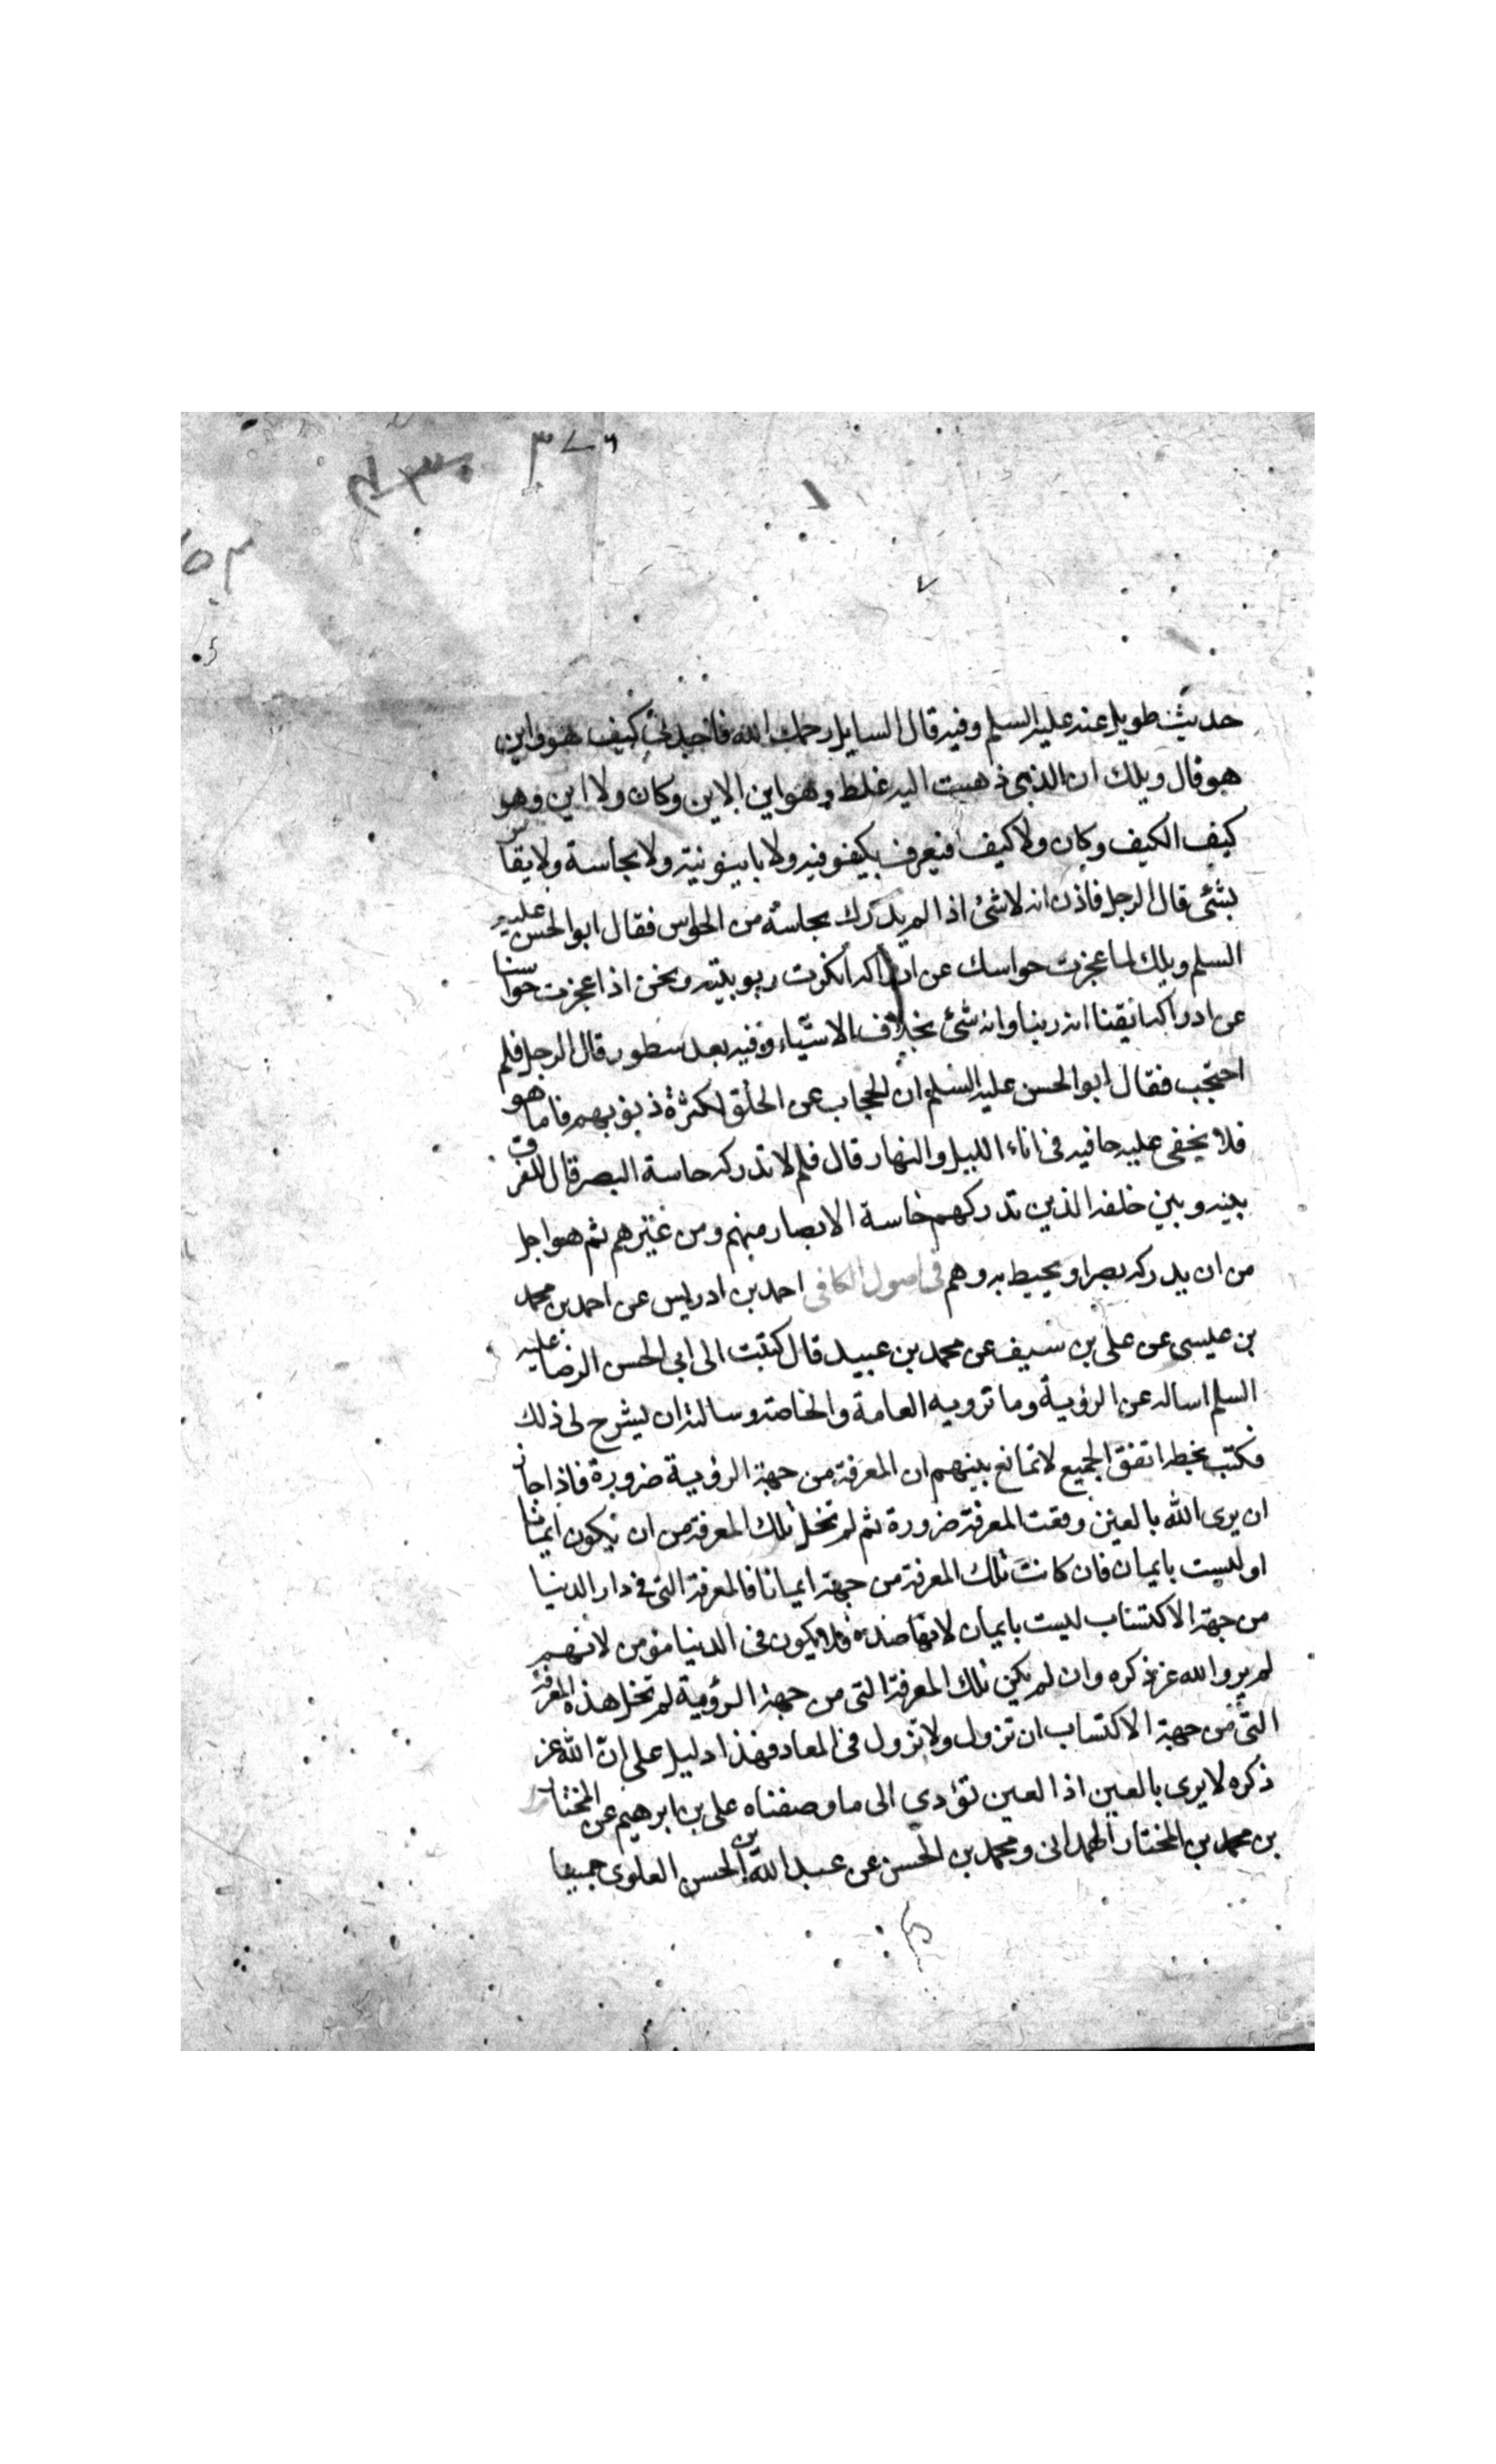 ٣٧٦
حديث طويل عنه عليه السلم وفيه قال السايل رحمك الله فاوجدنى كيف هو واين
هو قال ويلك ان الذى ذهبت اليه غلط وهو اين الاين وكان ولا اين وهو
كيف الكيف وكان ولا كيف فيعرف بكيفوفيه ولا باينونية ولا بحاسة ولا يقاس
بشئى قال الرجل فاذن انه لا شئ اذا لم يدرك بحاسة من الحواس فقال ابو الحسن عليه
السلم ويلك لما عجزت حواسك عن ادراكه انكرت ربوبيته ونحن اذا عجزت حواسنا
عن ادراكه ايقنا انه ربنا وانه شئ بخلاف الاشياء وفيه بعد سطور قال الرجل فلم
احتجب فقال ابو الحسن عليه السلم ان الحجاب عن الخلق لكثرة ذنوبهم فاما هو
فلا يخفى عليه خافيه فى اناء الليل والنهار قال فلم لا تدركه حاسة البصر قال للفرق
بينه وبين خلقه الذين تدركهم حاسة الابصار منهم ومن غيرهم ثم هو اجل
من ان يدركه بصر او يحيط به وهم فى اصول الكافى احمد بن ادريس عن احمد بن محمد
بن عيسى عن على بن سيف عن محمد بن عبيد قال كتبت الى ابى الحسن الرضا عليه
السلم اساله عن الرؤية وما ترويه العامة والخاصة وسالته ان يشرح لى ذلك
فكتب بخطه اتفق الجميع لا تمانع بينهم ان المعرفة من جهة الرؤية ضرورة فاذا جاز
ان يرى الله بالعين وقعت المعرفة ضرورة ثم لم تخل تلك المعرفة من ان يكون ايمانا
او ليست بايمان فان كانت تلك المعرفة من جهة ايمانا فالمعرفة التى فى دار الدنيا
من جهة الاكتساب ليست بايمان لانها ضده فلا يكون فى الدنيا مؤمن لانهم
لم يروا الله عز ذكره وان لم يكن تلك المعرفة التى من جهة الرؤية لم تخل هذه المعرفة
التى من جهة الاكتساب ان تزول ولا تزول فى المعاد فهذا دليل على ان الله عز
ذكره لا يرى بالعين اذ العين تؤدى الى ما وصفناه على بن ابرهيم عن المختار
بن محمد بن المختار الهمدانى ومحمد بن الحسن عن عبد الله بن الحسن العلوى جميعا